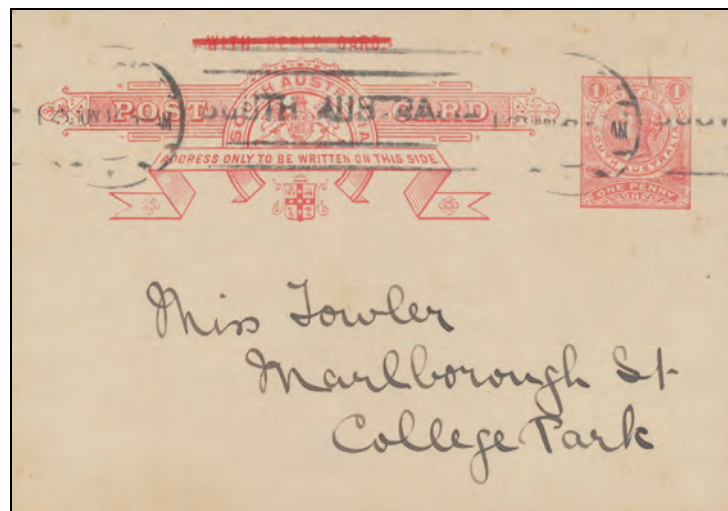 WITH REPLY CARD.
SOUTH AUSTRALIA
POST CARD
SOUTH AUS
ADDRESS ONLY TO BE WRITTEN ON THIS SIDE.
1 POSTAGE 1
SOUTH AUSTRALIA
ONE PENNY
Miss Fowler
Marlborough St
College Park